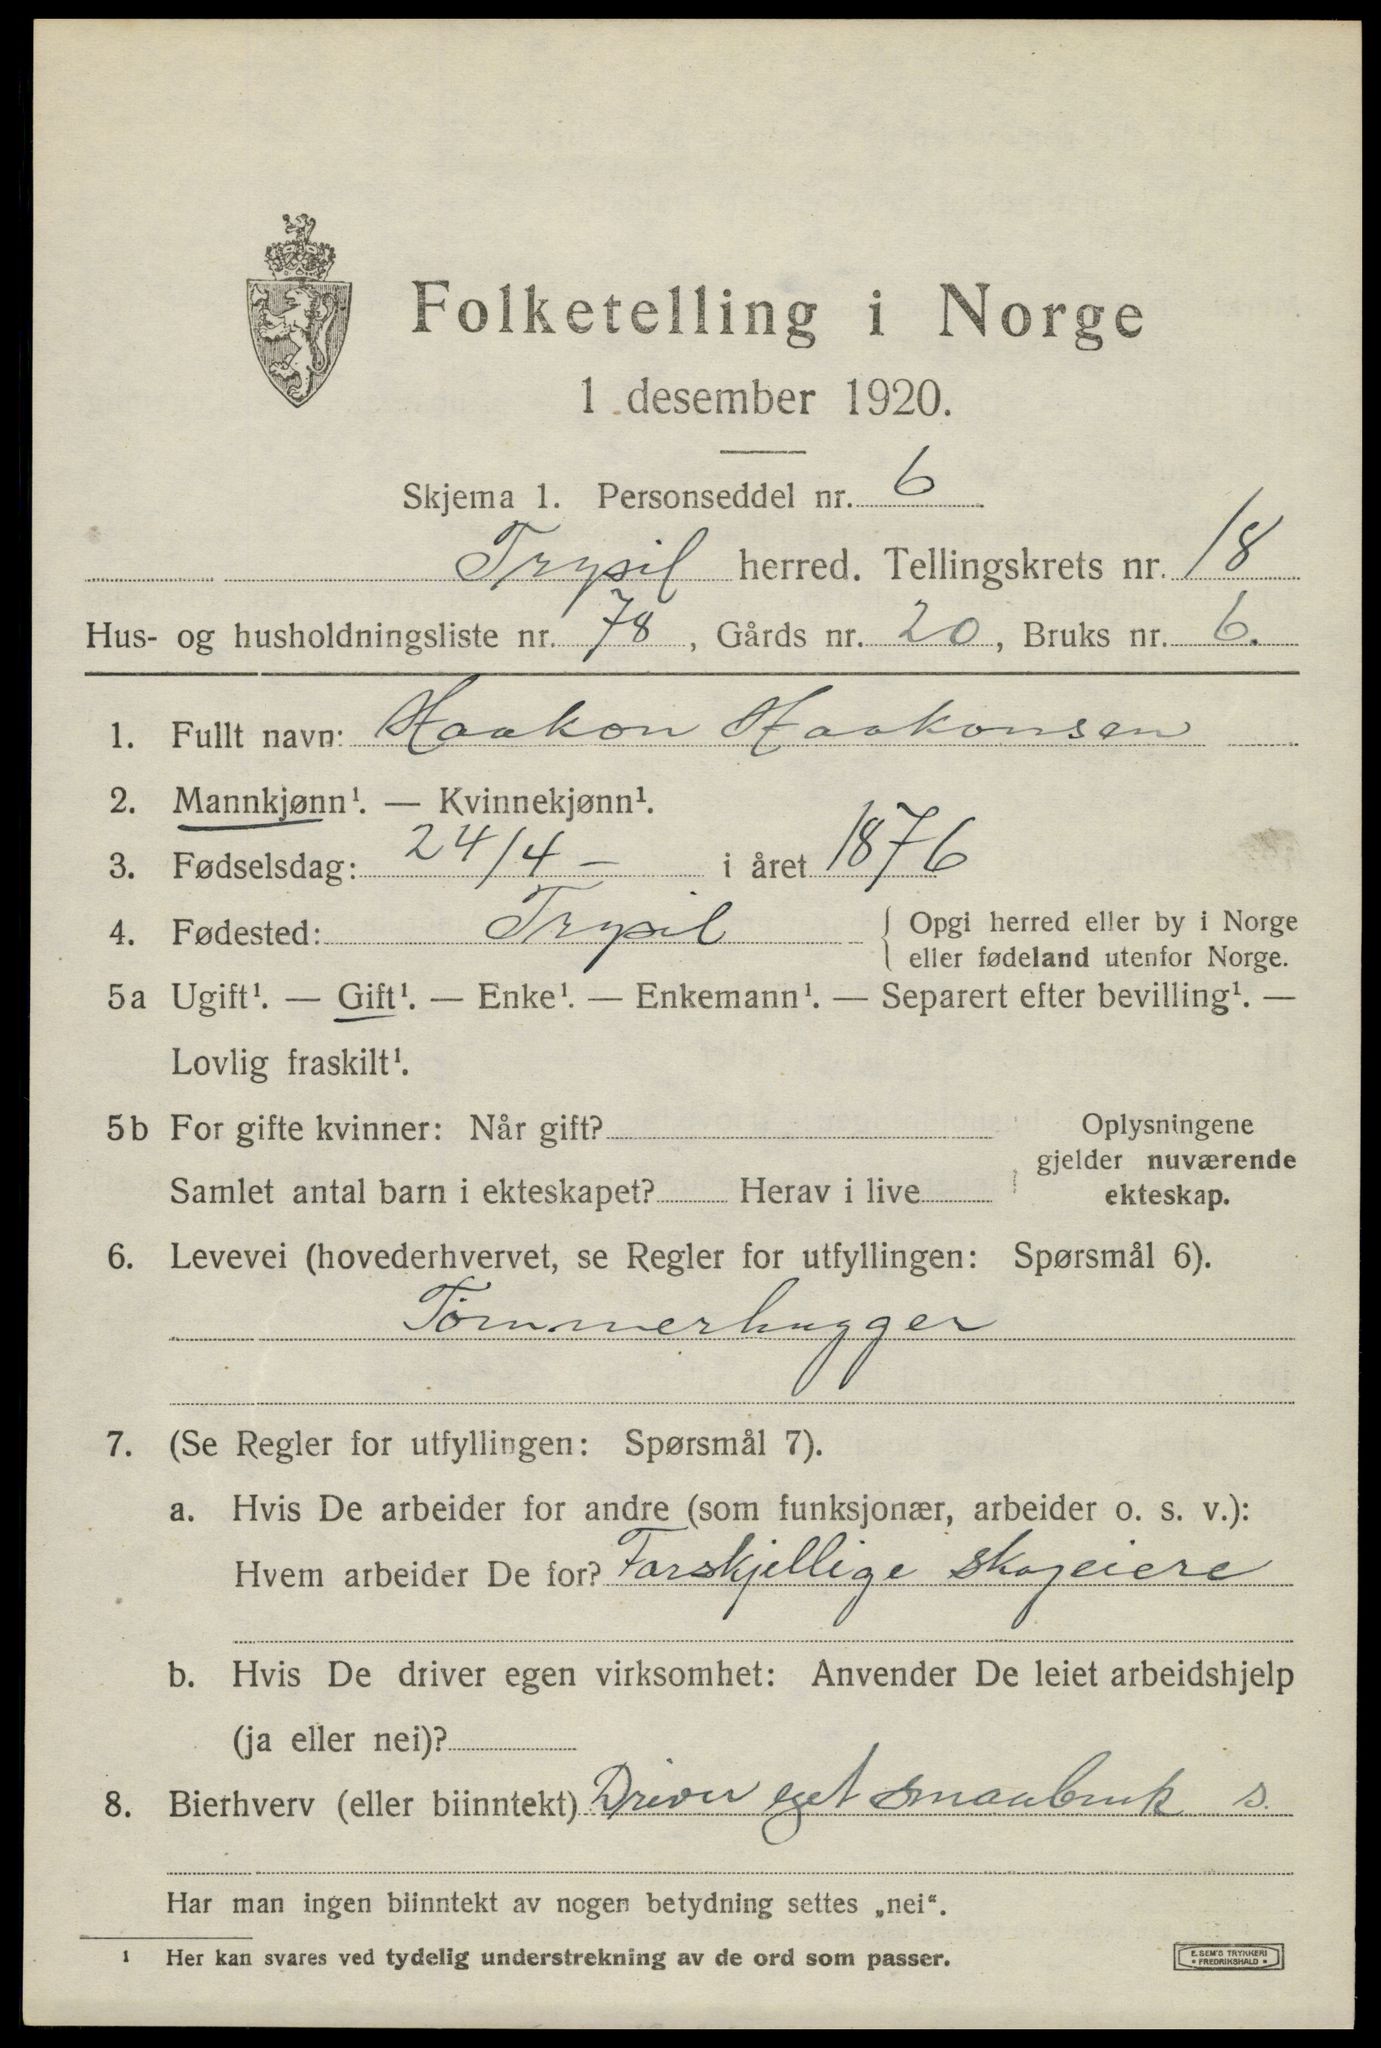 Folketelling i Norge
1 desember 1920.
Skjema 1. Personseddel nr. 6
Trysil herred. Tellingskrets nr. 18
Hus- og husholdningsliste nr. 78, Gårds nr. 20, Bruks nr. 6.
1. Fullt navn: Haakon Haakonsen
2. Mannkjønn¹. — Kvinnekjønn¹.
3. Fødselsdag: 24/4 – i året 1876
4. Fødested: Trysil { Opgi herred eller by i Norge
eller fødeland utenfor Norge.
5a Ugift¹. — Gift¹. — Enke¹. — Enkemann¹. — Separert efter bevilling¹. —
Lovlig fraskilt¹.
5b For gifte kvinner: Når gift? Oplysningene
gjelder nuværende
Samlet antal barn i ekteskapet? Herav i live ekteskap.
6. Levevei (hovederhvervet, se Regler for utfyllingen: Spørsmål 6).
Tömmerhugger
7. (Se Regler for utfyllingen: Spørsmål 7).
a. Hvis De arbeider for andre (som funksjonær, arbeider o. s. v.):
Hvem arbeider De for? Forskjellige skogeiere
b. Hvis De driver egen virksomhet: Anvender De leiet arbeidshjelp
(ja eller nei)?
8. Bierhverv (eller biinntekt) Driver eget smaabruk s.
Har man ingen biinntekt av nogen betydning settes „nei“.
¹ Her kan svares ved tydelig understrekning av de ord som passer.
E. SEM'S TRYKKERI
• FREDRIKSHALD •